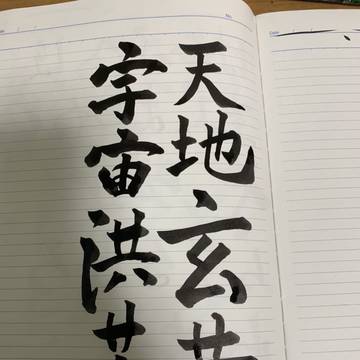 天地玄
宇宙洪